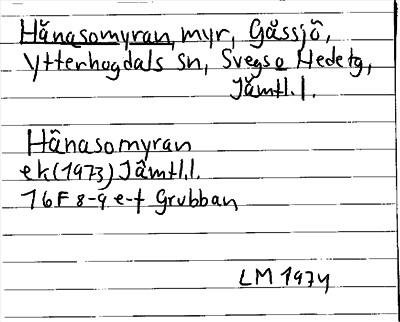 Hånasomyran, myr, Gåssjö,
Ytterhogdals sn, Svegs o Hedetg,
Jämtl.l.
Hånasomyran
ek(1973) Jämtl.l.
16F 8-9 e-f Grubban
LM 1974